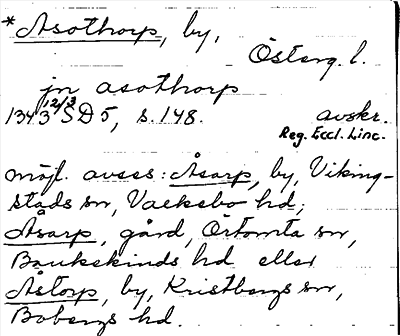 *Åsothorp, by,
Österg. l.
jn asothorp
1343 12/3 SD 5, s. 148.
avskr.
Reg. Eccl. Linc.
möjl. avses: Åsarp, by, Viking-
stads sn, Valkebo hd;
Åsarp, gård, Örtomta sn,
Bankekinds hd eller
Åstorp, by, Kristbergs sn,
Bobergs hd.